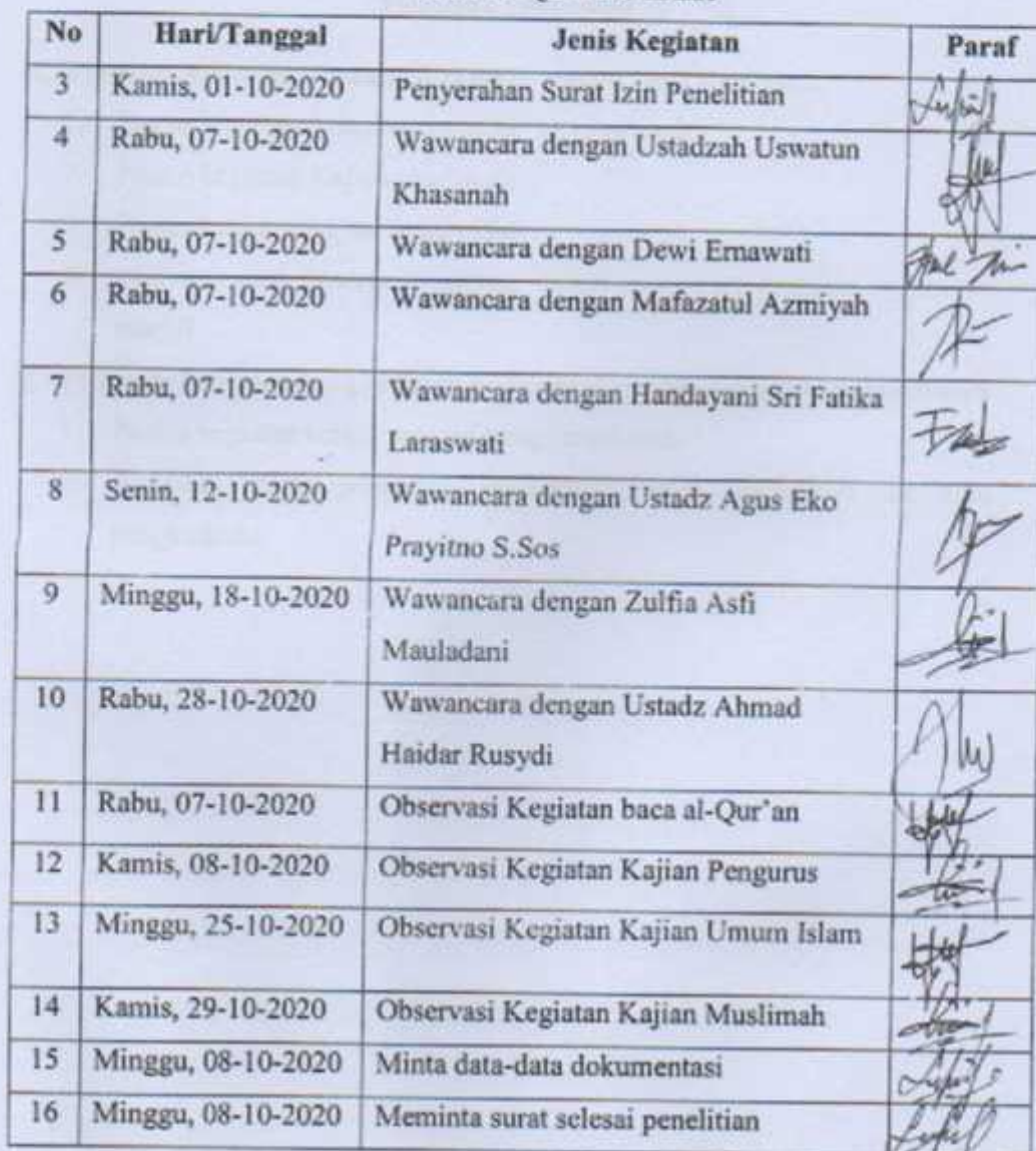 No Hari/Tanggal Jenis Kegiatan Paraf
3 Kamis, 01-10-2020 Penyerahan Surat Izin Penelitian
4 Rabu, 07-10-2020 Wawancara dengan Ustadzah Uswatun
Khasanah
5 Rabu, 07-10-2020 Wawancara dengan Dewi Ernawati
6 Rabu, 07-10-2020 Wawancara dengan Mafazatul Azmiyah
7 Rabu, 07-10-2020 Wawancara dengan Handayani Sri Fatika
Laraswati
8 Senin, 12-10-2020 Wawancara dengan Ustadz Agus Eko
Prayitno S.Sos
9 Minggu, 18-10-2020 Wawancara dengan Zulfia Asfi
Mauladani
10 Rabu, 28-10-2020 Wawancara dengan Ustadz Ahmad
Haidar Rusydi
11 Rabu, 07-10-2020 Observasi Kegiatan baca al-Qur'an
12 Kamis, 08-10-2020 Observasi Kegiatan Kajian Pengurus
13 Minggu, 25-10-2020 Observasi Kegiatan Kajian Umum Islam
14 Kamis, 29-10-2020 Observasi Kegiatan Kajian Muslimah
15 Minggu, 08-10-2020 Minta data-data dokumentasi
16 Minggu, 08-10-2020 Meminta surat selesai penelitian